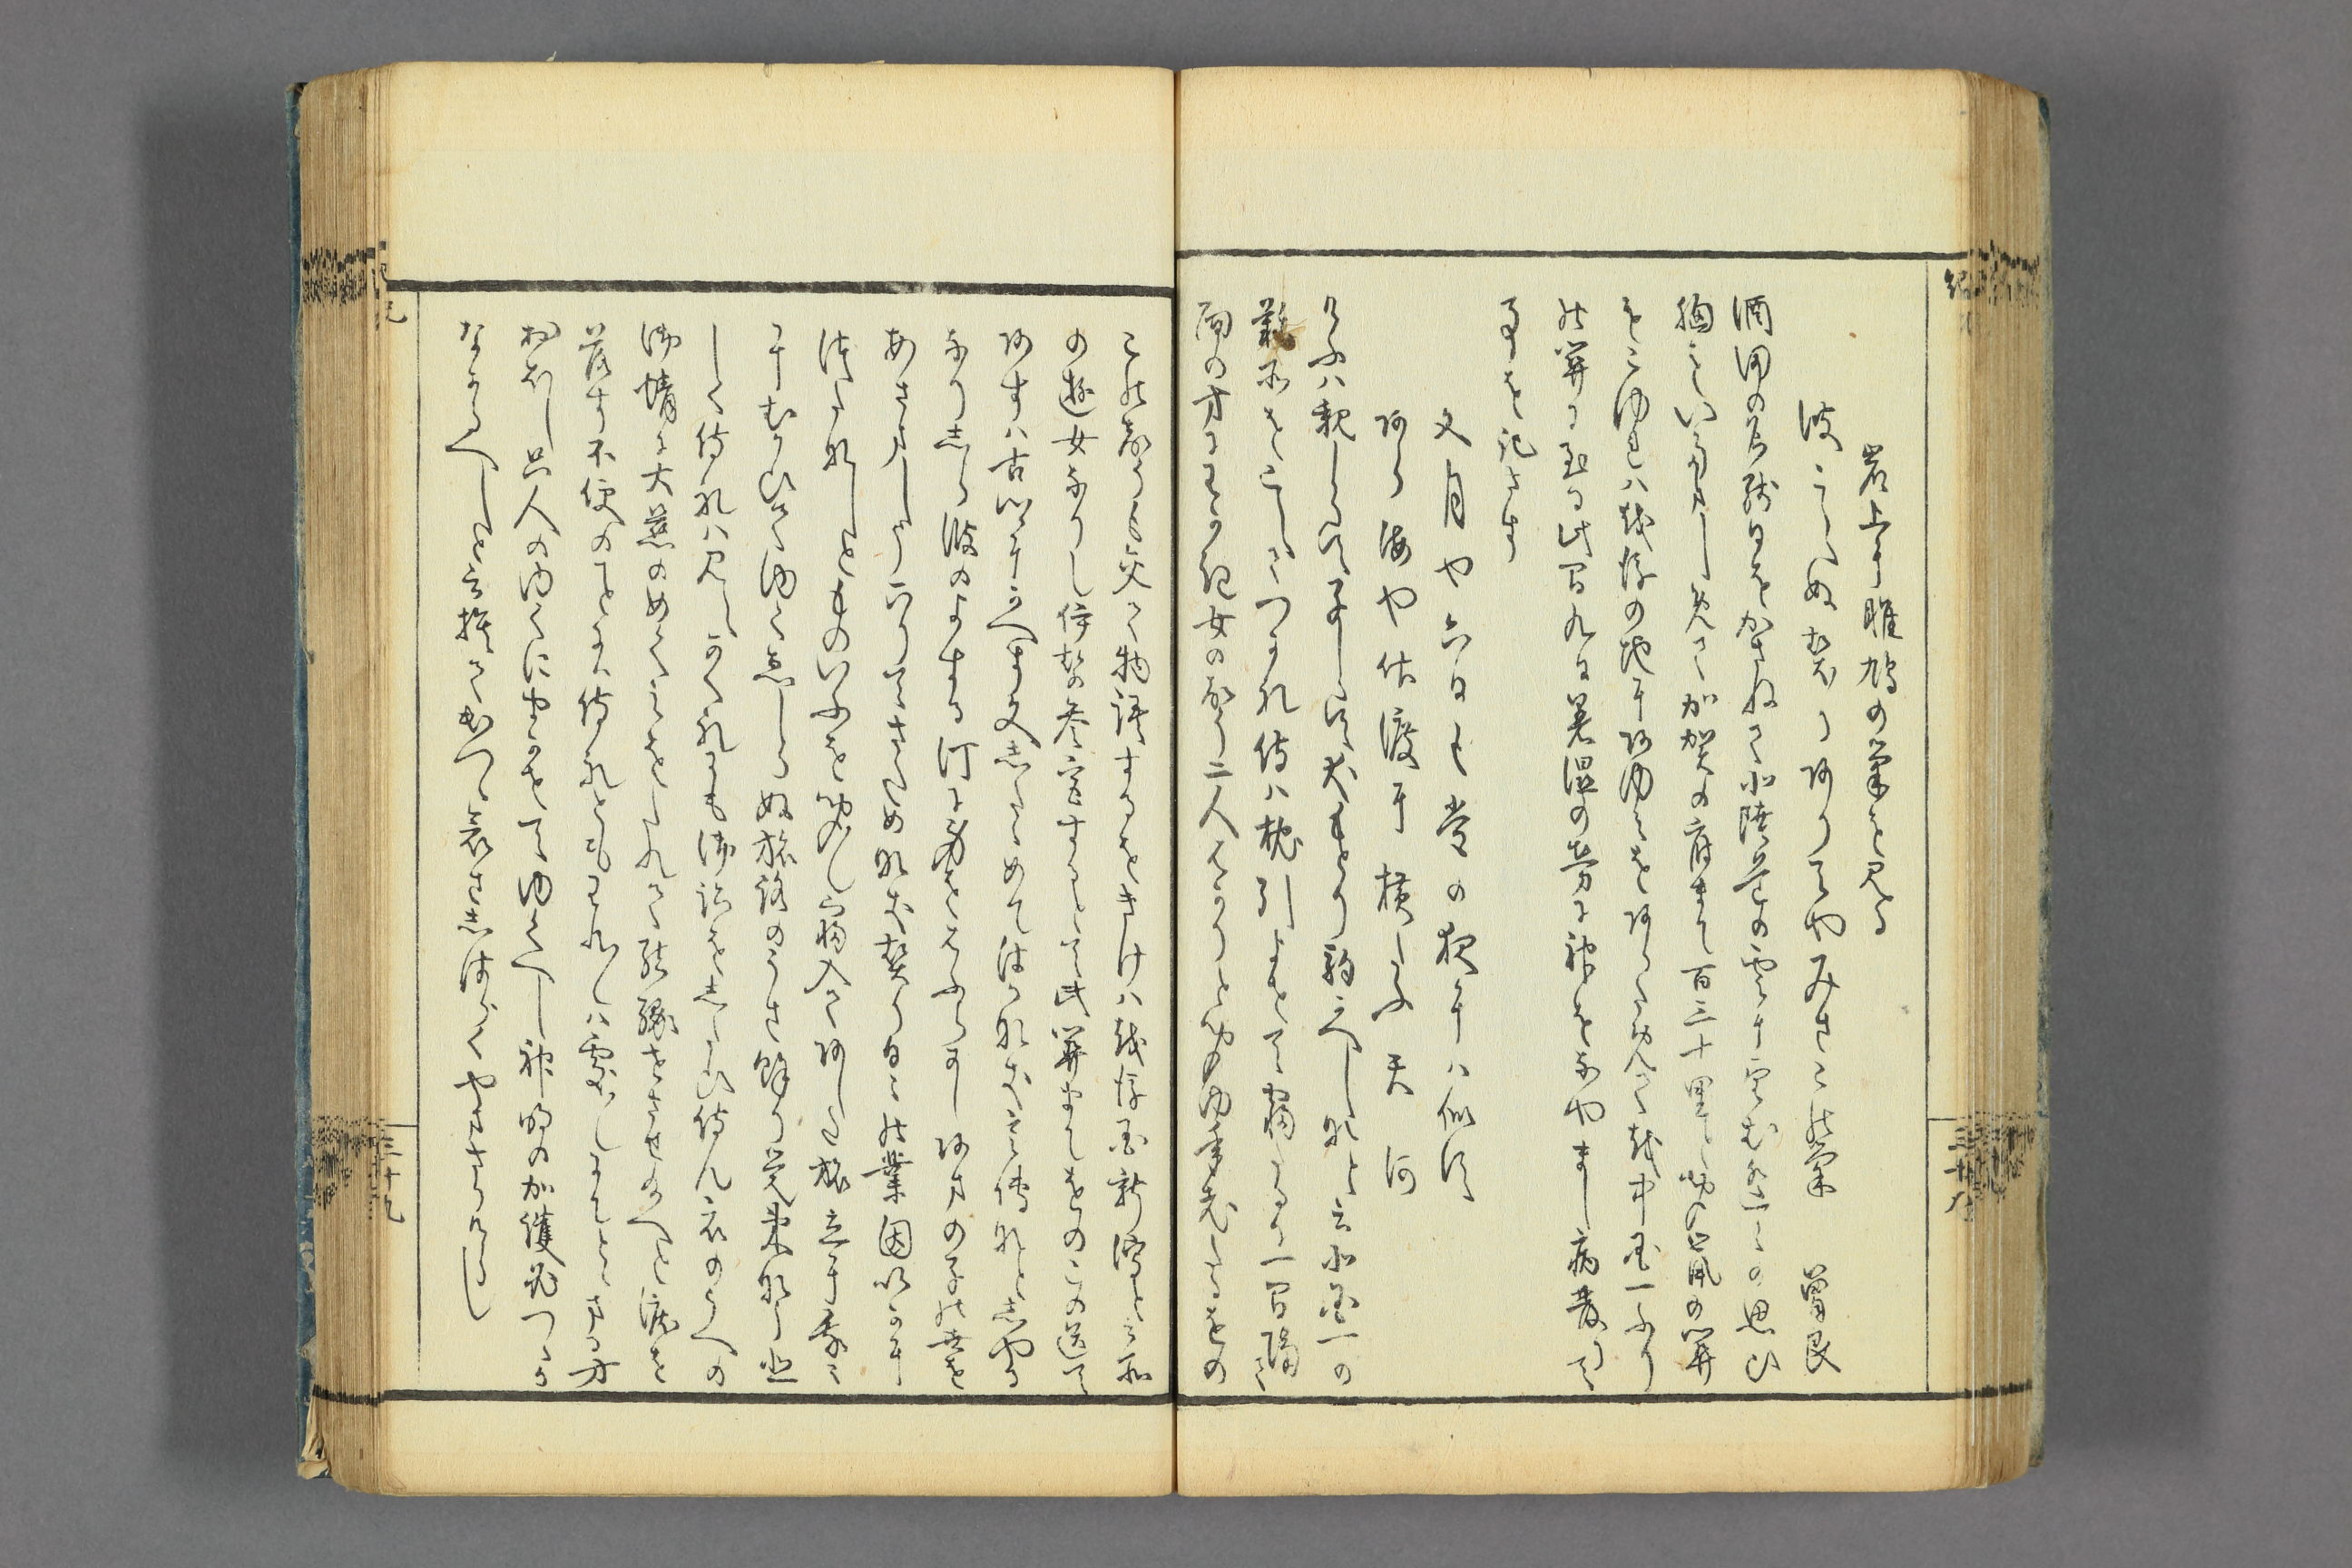 岩上に雎鳩の巣を見る
波こえぬ契りありてやみさこの巣　曽良
酒田の名残日をかさねて北陸道の雲に望む遥々の思ひ
胸をいたましめて加賀の府まて百三十里と聞鼠の関
をこゆれハ越後の地に歩行を改て越中国一ふり
の関に到る此間九日暑湿の労に神をなやまし病發りて
事を記さす
文月や六日も常の夜にハ似す
あら海や佐渡に横たふ天河
けふハ親しらす子しらす犬もとり駒かへしなと云北国一の
難所をこしてつかれ侍ハ枕引よせて寝たるに一間隔て
面の方に若き女の声二人はかりと聞ゆ年老たるをの
この声も交て物語するをきけハ越後国新潟と云所
の遊女なりし伊勢参宮するとて此関までをのこの送て
あすハ古郷にかへす文したゝめてはかなき言傳なとしやる
なりしら波のよする汀に身をはふらかしあまの子の世を
あさましう下りて定めなき契り日々の業因いかに
つたなしとものいふを聞々寝入てあした旅立に我々
にむかひて行衛しらぬ旅路のうさ餘り覚束なう悲
しく侍れハ見えかくれにも御跡をしたひ侍ん衣のうへの
御情に大慈のめくみをたれて結縁せさせ給へと泪を
落す不便のことにハ侍れともわれ〳〵ハ所々にてとゝまる方
おほし只人の行にまかせてゆくへし神明の加護必つゝか
なかるへしと云捨て出つゝ哀さしはらくやまさりけらし
紀
三十八
三十九